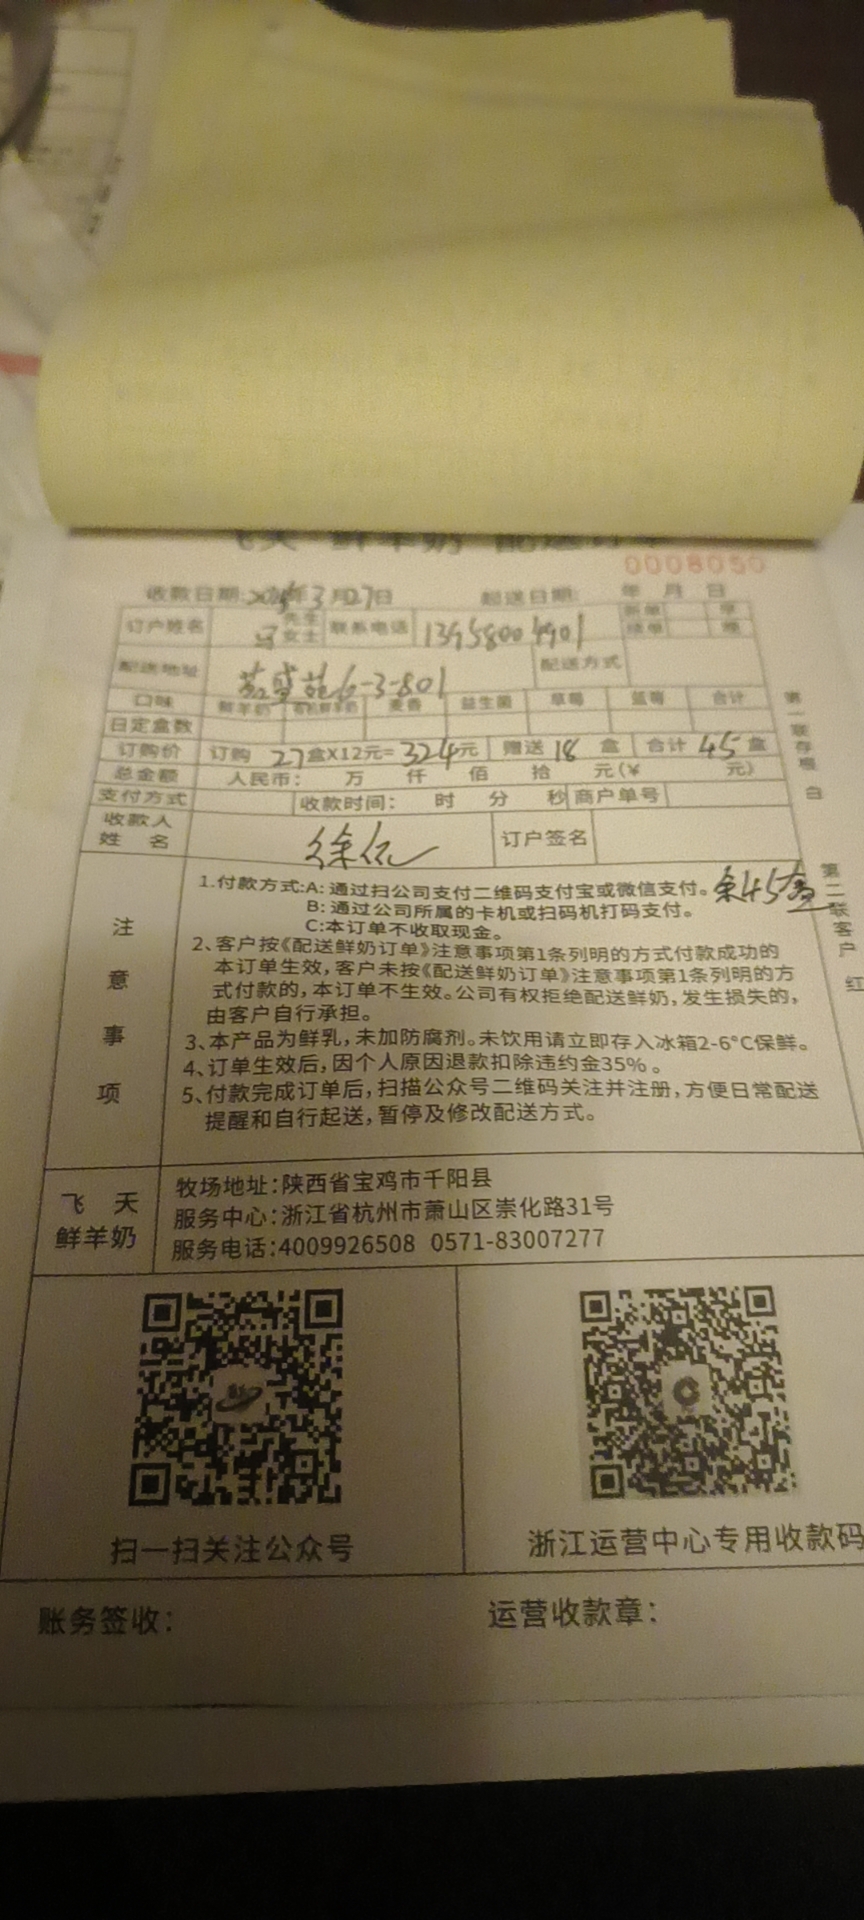 飞天 鲜羊奶 配送订单
0008050
收款日期: 年3月27日 起送日期: 年 月 日
订户姓名 先生 女士 联系电话 13958004901 新单 早
续单 晚
配送地址 6-3-801 配送方式
口味 鲜羊奶 有机鲜羊奶 麦香 益生菌 草莓 蓝莓 合计
日定盒数
订购价 订购 27盒X12元=324元 赠送 18 盒 合计 45 盒
总金额 人民币: 万 仟 佰 拾 元(¥ 元)
支付方式 收款时间: 时 分 秒 商户单号
收款人
姓 名 徐 订户签名
第一联存根 白
第二联客户 红
注意事项
1.付款方式:A: 通过扫公司支付二维码支付宝或微信支付。余45盒
B: 通过公司所属的卡机或扫码机打码支付。
C:本订单不收取现金。
2、客户按《配送鲜奶订单》注意事项第1条列明的方式付款成功的
本订单生效,客户未按《配送鲜奶订单》注意事项第1条列明的方
式付款的,本订单不生效。公司有权拒绝配送鲜奶,发生损失的,
由客户自行承担。
3、本产品为鲜乳,未加防腐剂。未饮用请立即存入冰箱2-6°C保鲜。
4、订单生效后,因个人原因退款扣除违约金35%。
5、付款完成订单后,扫描公众号二维码关注并注册,方便日常配送
提醒和自行起送,暂停及修改配送方式。
飞 天
鲜羊奶
牧场地址:陕西省宝鸡市千阳县
服务中心:浙江省杭州市萧山区崇化路31号
服务电话:4009926508 0571-83007277
扫一扫关注公众号
浙江运营中心专用收款码
账务签收:
运营收款章: